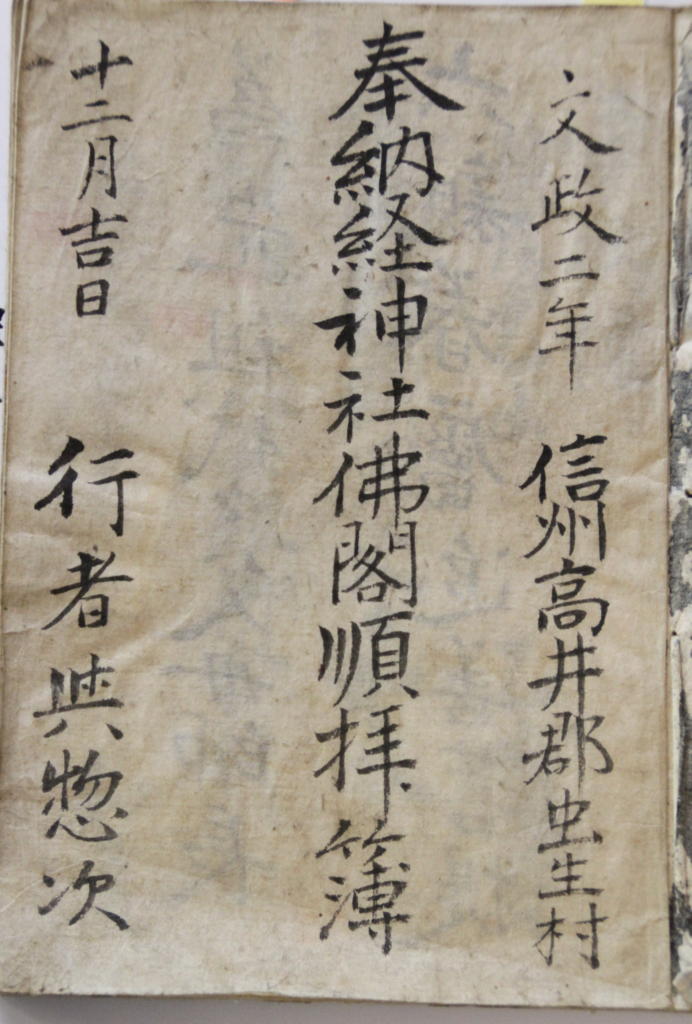 文政二年　信州高井郡虫生村
奉納経神社佛閣順拝簿
十二月吉日　行者與惣次